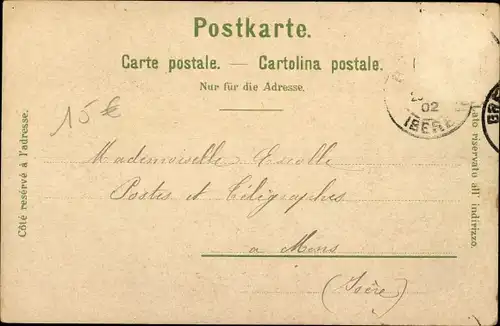 Postkarte.
Carte postale. — Cartolina postale.
Nur für die Adresse.
15 €
Côté reservé à l'adresse.
Lato riservato all' indirizzo.
02
Mademoiselle
Postes et Télégraphes
a Mens
(Isère)